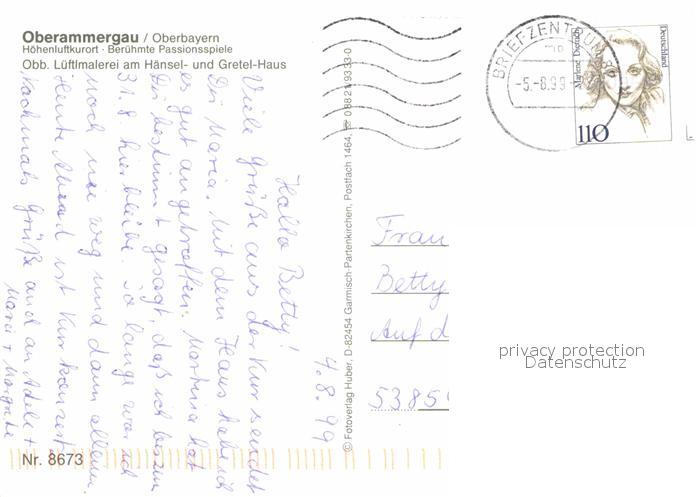 Oberammergau / Oberbayern
Höhenluftkurort · Berühmte Passionsspiele
Obb. Lüftlmalerei am Hänsel- und Gretel-Haus
4.8.99
Hallo Betty!
Viele Grüße aus der Kur sendet
Dir Maria. Mit dem Haus habe ich
es gut angetroffen. Martina hat
Dir bestimmt gesagt, daß ich bis zum
31.8 hier bleibe. So lange war ich
noch nie weg und dann allein.
Heute Abend ist Kurkonzert
Nochmals Grüße auch an Adele +
Maria + Margret
Nr. 8673
© Fotoverlag Huber, D-82454 Garmisch-Partenkirchen, Postfach 1464, ☎ 0 88 21/93 33-0
BRIEFZENTRUM 8
-5.-8.99
Marlene Dietrich
Deutschland
110
Frau
Betty
Auf d
5385
privacy protection
Datenschutz